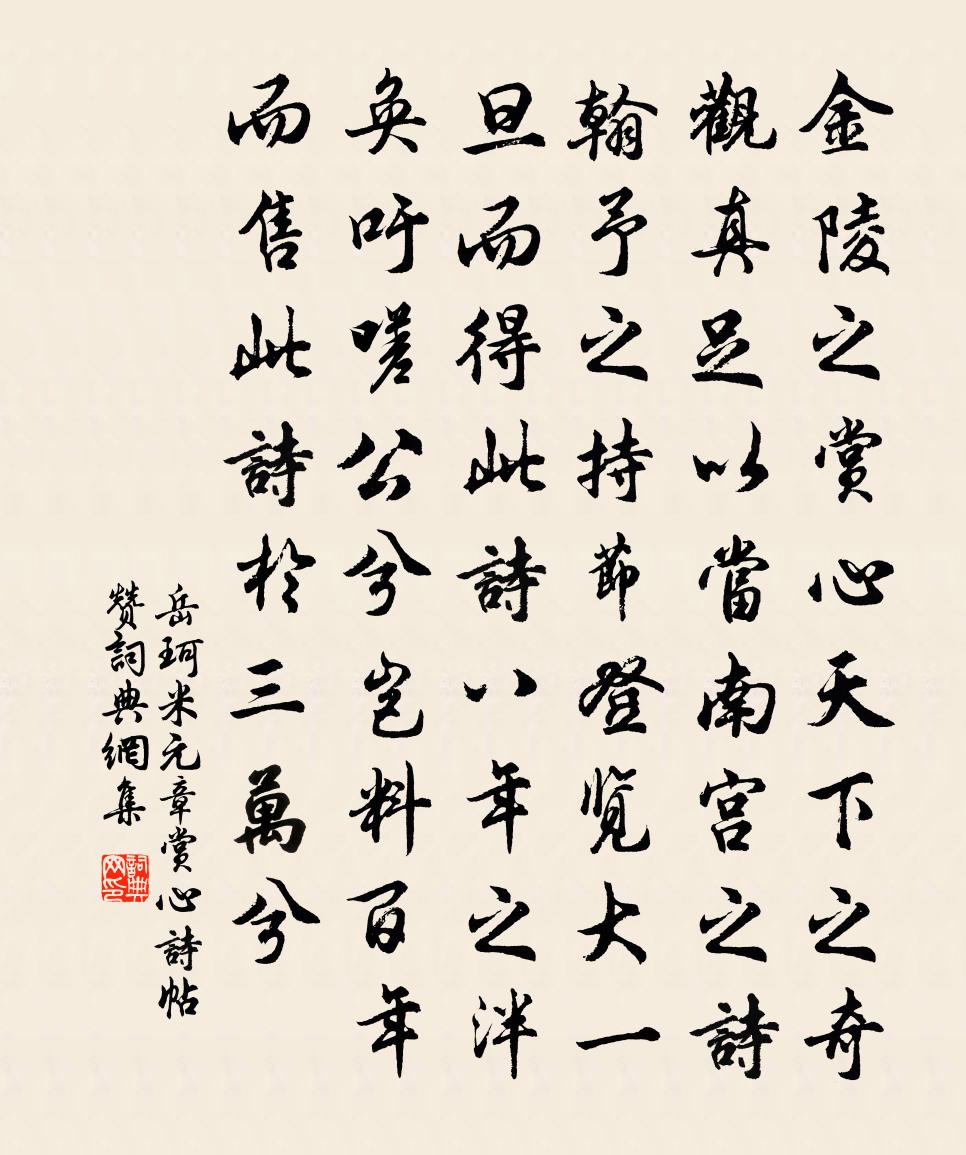 金陵之賞心天下之奇
觀真足以當南宮之詩
翰予之持節登覽大一
旦而得此詩八年之泮
奐吁嗟公兮豈料百年
而售此詩於三萬兮
岳珂米元章賞心詩帖
贊詞典網集
詞典网印